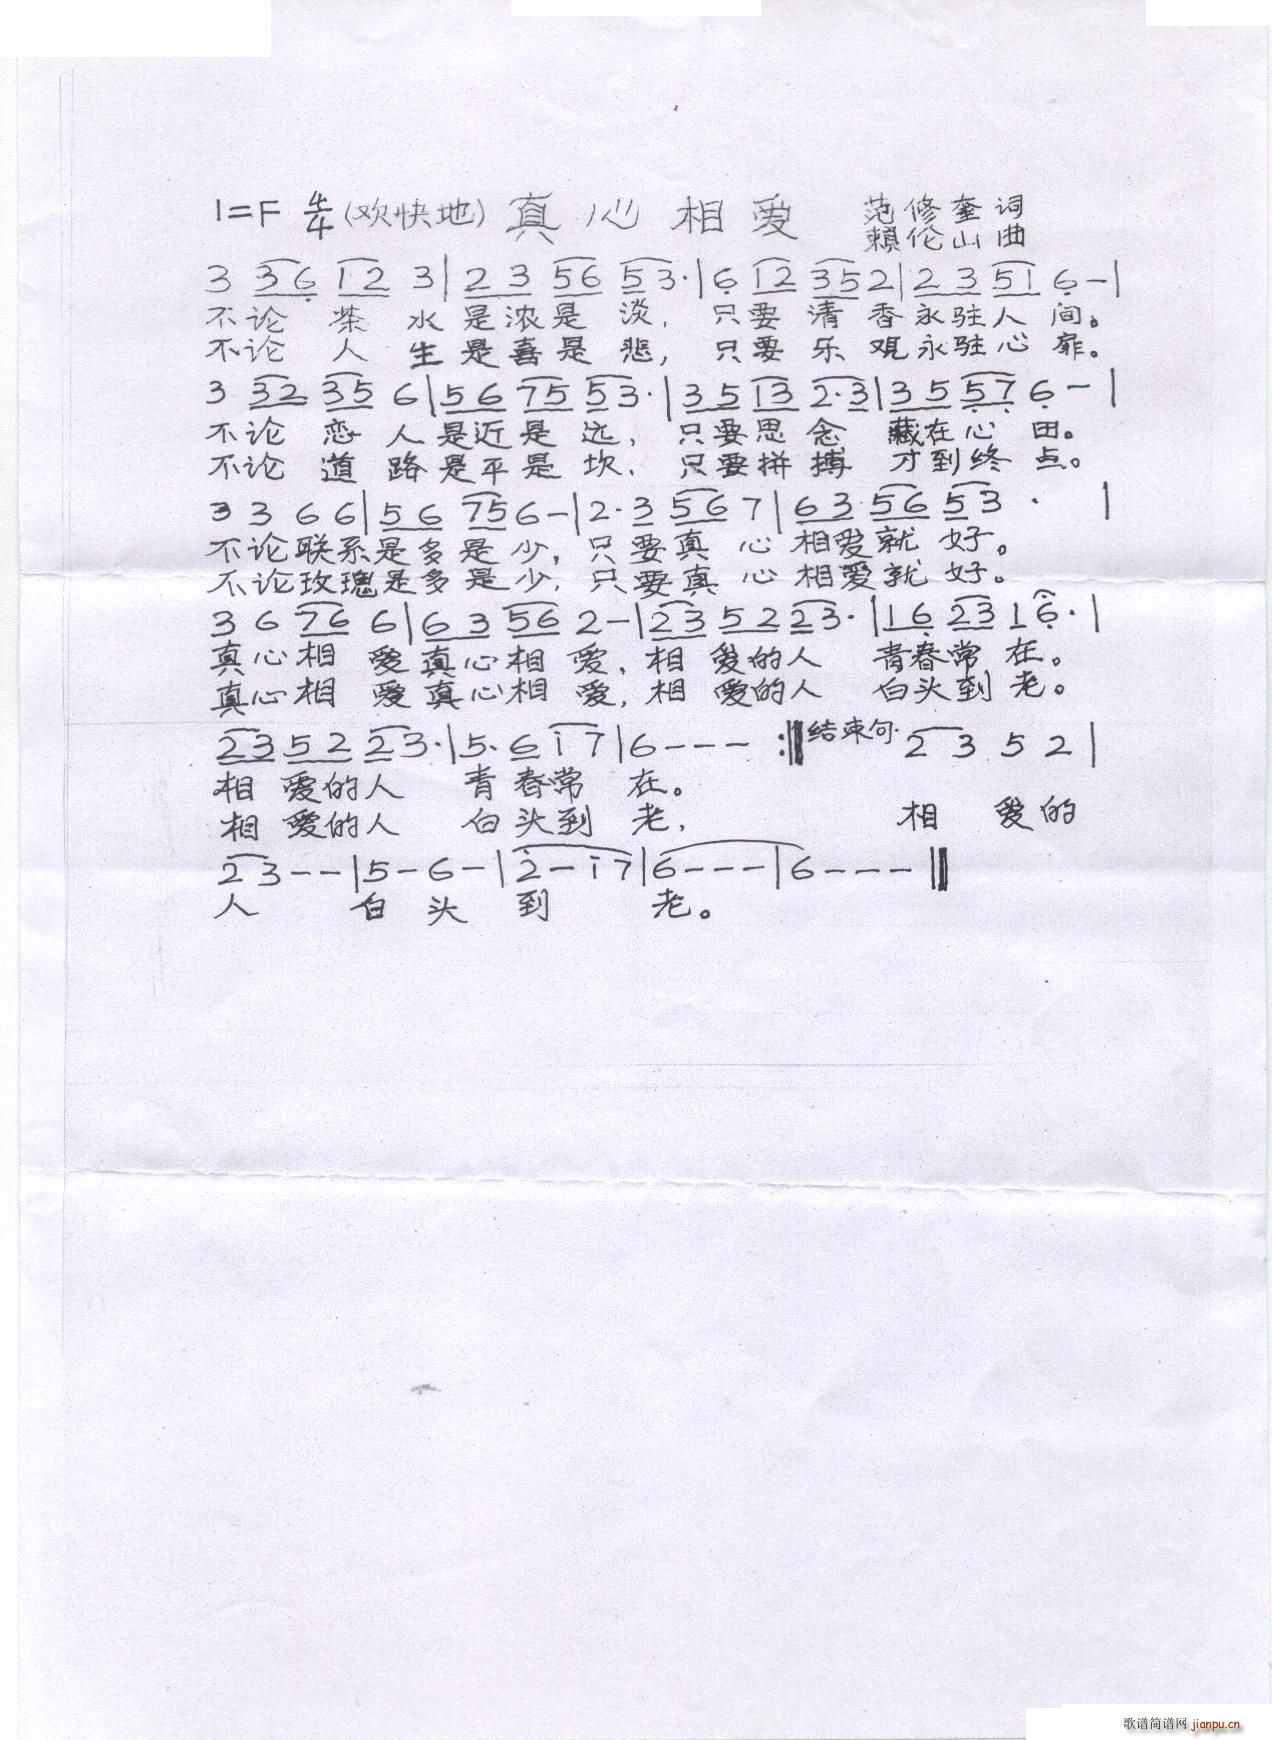 1=F 4/4 (欢快地) 真心相爱 范修奎词
赖伦山曲
3 36 12 3 | 2 3 56 53· | 6 12 352 | 2 3 51 6 - |
不论 茶 水是浓是 淡, 只要清香永驻人间。
不论 人 生是喜是 悲, 只要乐观永驻心扉。
3 32 35 6 | 56 75 53· | 35 13 2·3 | 35 57 6 - |
不论 恋 人是近是 远, 只要思念 藏在心 田。
不论 道 路是平是 坎, 只要拼搏 才到终 点。
3 3 6 6 | 56 75 6 - | 2·3 56 7 | 63 56 53 · |
不论联系是多是少, 只要真 心 相爱就 好。
不论玫瑰是多是少, 只要真 心 相爱就 好。
3 6 76 6 | 63 56 2 - | 23 52 23· | 16 23 1 6· |
真心相 爱真心相 爱, 相 爱的人 青春常 在。
真心相 爱真心相 爱, 相 爱的人 白头到 老。
23 52 23· | 5· 6 i 7 | 6 - - - :‖ 结束句 2 3 5 2 |
相 爱的人 青春常 在。
相 爱的人 白头到 老, 相 爱的
2 3 - - | 5 - 6 - | 2 - i 7 | 6 - - - | 6 - - - ‖
人 白 头 到 老。
歌谱简谱网 jianpu.cn